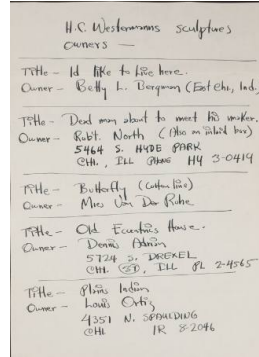 H.C. Westermanns sculptures
owners —
Title – Id like to live here.
Owner – Betty L. Bergman (East Chi, Ind.
Title – Dead man about to meet his maker.
Owner – Rob't. North (Also an inlaid box)
5464 S. HYDE PARK
CHI., ILL PHONE HY 3-0419
Title – Butterfly (cotton line)
Owner – Mies Van Der Rohe
Title – Old Eccentric's House.
Owner – Dennis Adrian
5724 S. DREXEL
CHI. 37, ILL PL 2-4565
Title – Plains Indian
Owner – Louis Ortiz
4351 N. SPAULDING
CHI IR 8-2046